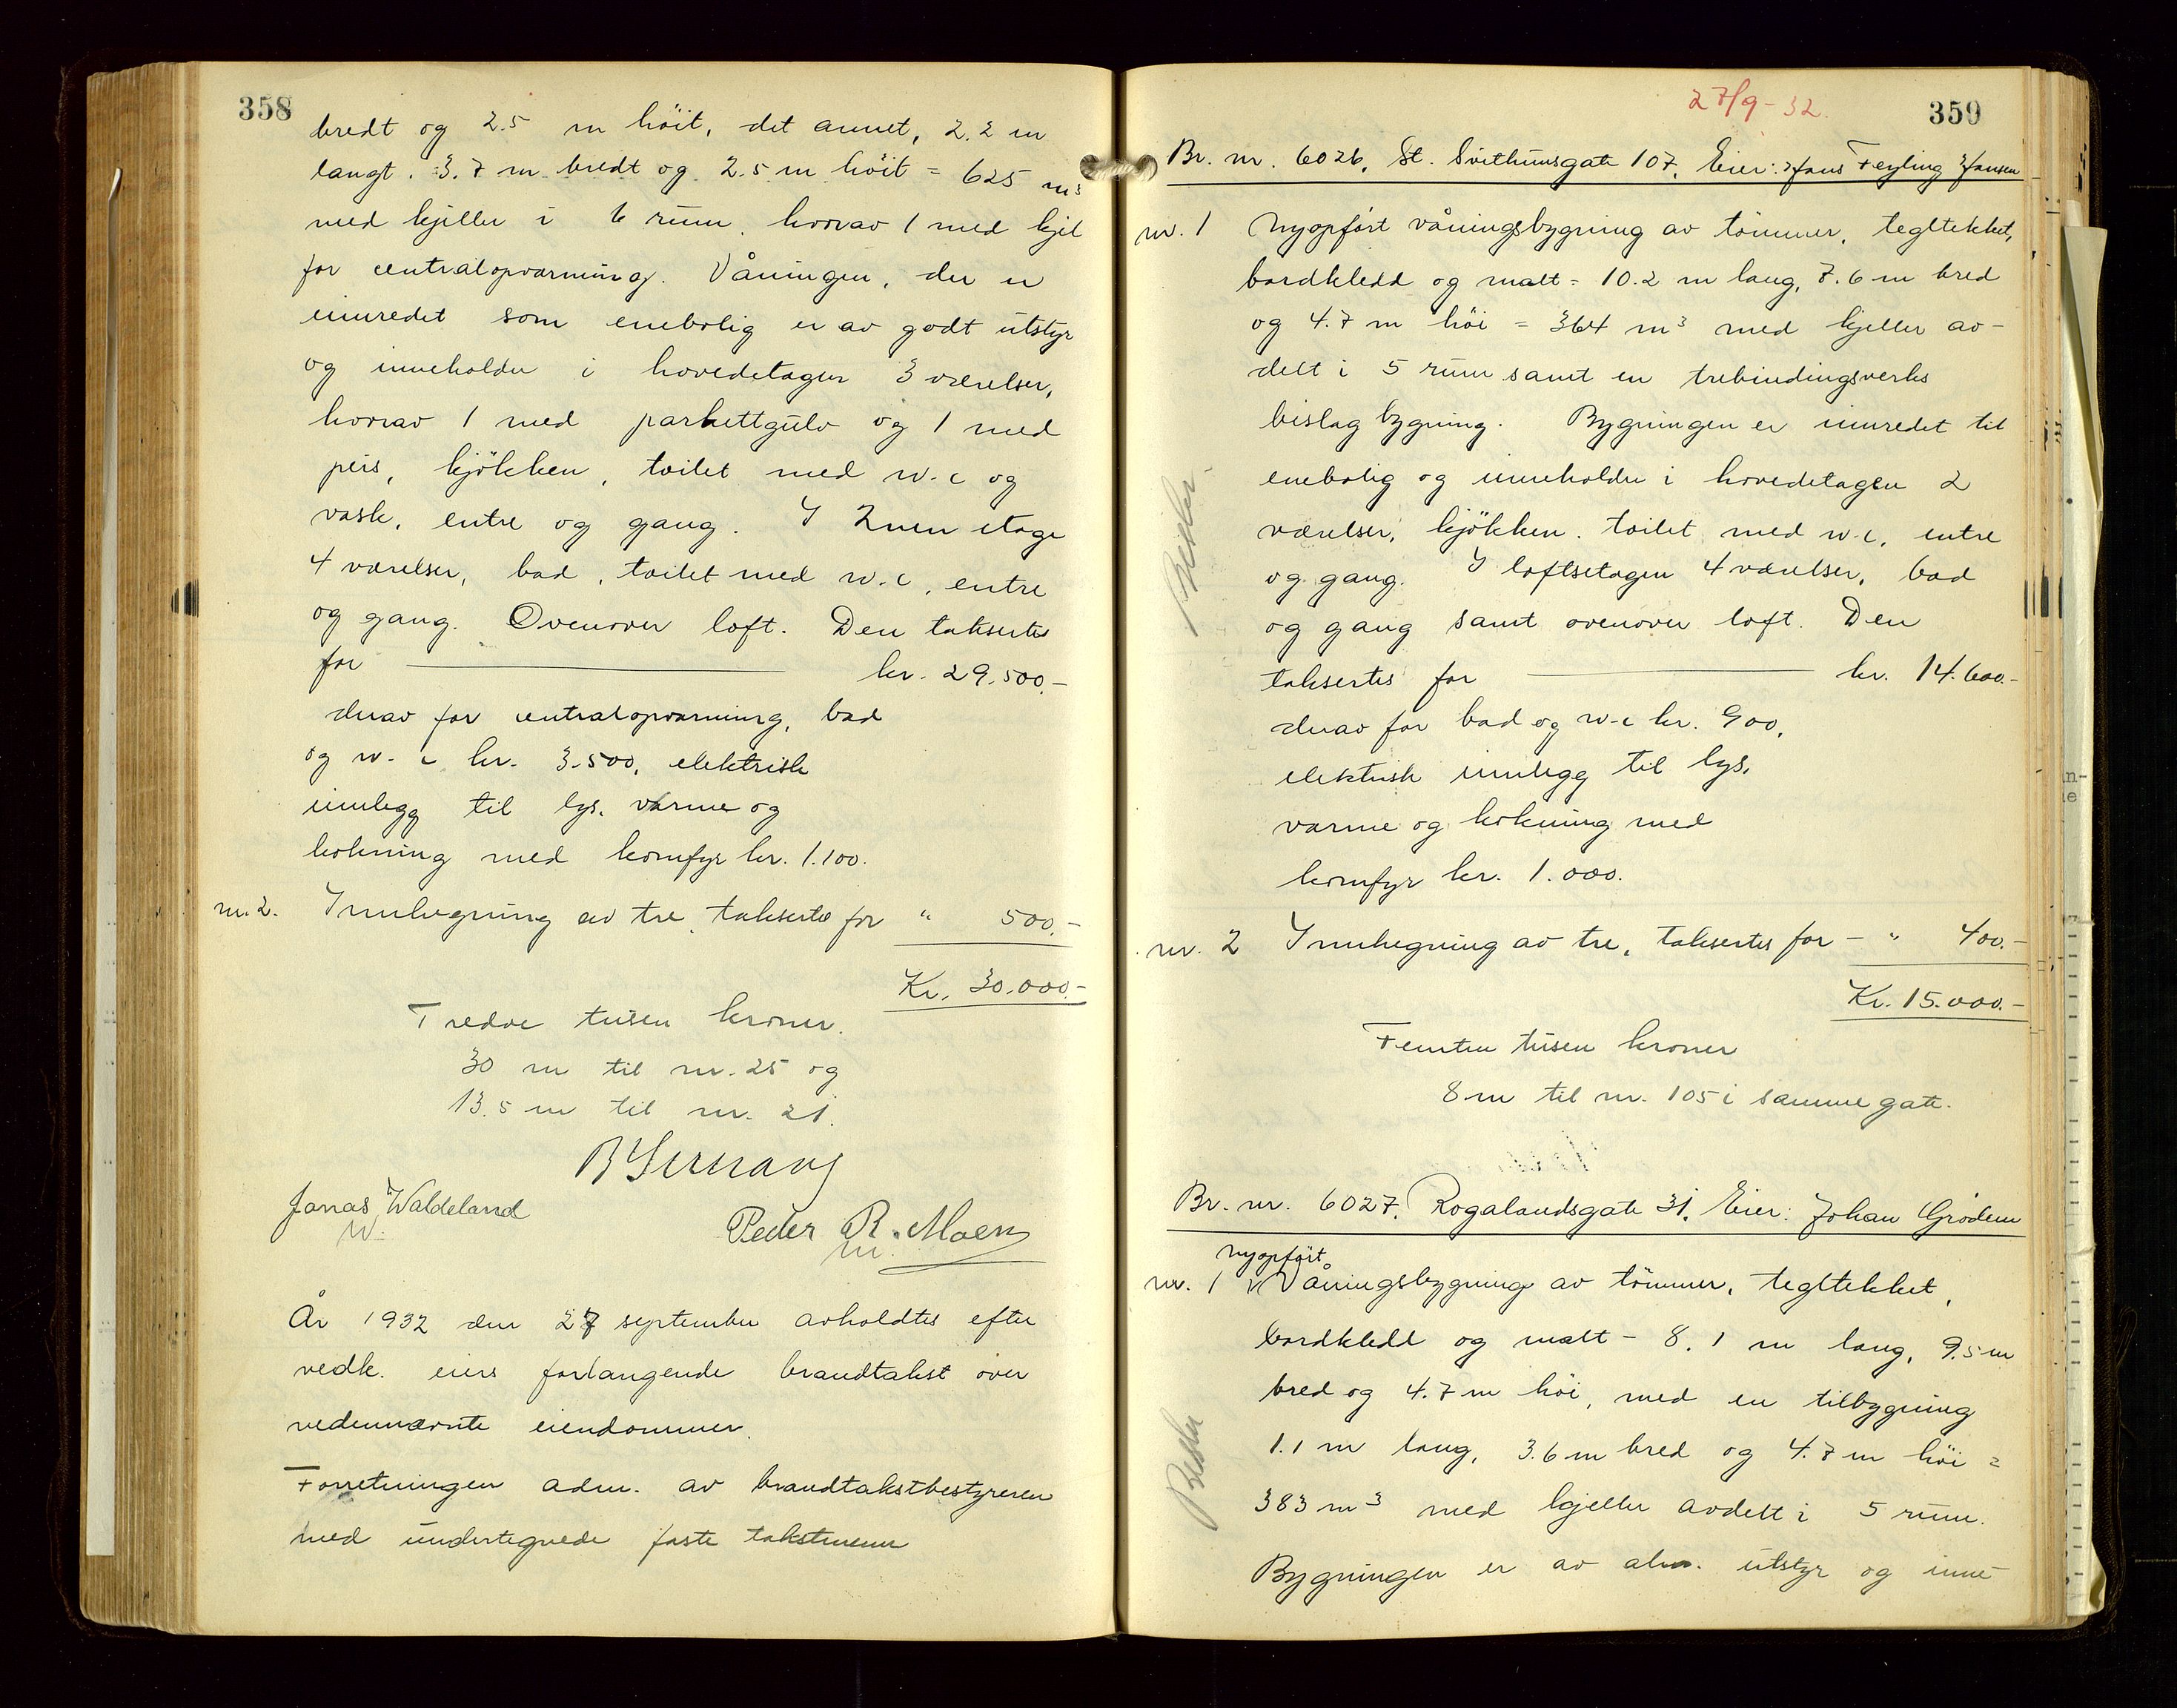 358
bredt og 2.5 m höit, det annet, 2.2 m
langt. 3.7 m bredt og 2.5 m höit = 625 m³
med kjeller i 6 rum, hvorav 1 med kjel
for centralopvarming. Våningen, der er
innredet som enebolig er av godt utstyr
og inneholder i hovedetagen 3 værelser,
hvorav 1 med parkettgulv og 1 med
peis, kjökken, toilet med w.c og
vask, entre og gang. I 2nen etage
4 værelser, bad, toilet med w.c, entre
og gang. Ovenover loft. Den taksertes
for kr. 29.500.-
derav for centralopvarming, bad
og w.c kr. 3.500, elektrisk
innlegg til lys, varme og
kokning med komfyr kr. 1.100.
nr. 2. Innhegning av tre, taksertes for " 500.-
Kr. 30.000.-
Tredve tusen kroner.
30 m til nr. 25 og
13.5 m til nr. 21.
Jonas Waldeland
Peder R. Moen
År 1932 den 27 september avholdtes efter
vedk. eiers forlangende brandtakst over
nedennævnte eiendommer.
Forretningen adm. av brandtakstbestyreren
med undertegnede faste takstmenn
27/9-32.
359
Br. nr. 6026, St. Svithunsgate 107, Eier: Hans Feyling Hansen
nr. 1 Nyopfört våningsbygning av tömmer, tegltekket,
bordkledd og malt = 10.2 m lang, 7.6 m bred
og 4.7 m höi = 364 m³ med kjeller av-
delt i 5 rum samt en trebindingsverks
bislag bygning. Bygningen er innredet til
enebolig og inneholder i hovedetagen 2
værelser, kjökken. toilet med w.c, entre
og gang. I loftsetagen 4 værelser, bad
og gang samt ovenover loft. Den
taksertes for kr. 14.600.-
derav for bad og w.c kr. 900,
elektrisk innlegg til lys,
varme og kokning med
komfyr kr. 1.000.
nr. 2 Innhegning av tre, taksertes for - " 400.-
Kr. 15.000.-
Femten tusen kroner
8 m til nr. 105 i samme gate.
Br. nr. 6027, Rogalandsgate 31, Eier: Johan Grödem
nyopfört
nr. 1 Våningsbygning av tömmer, tegltekket,
bordkledd og malt - 8.1 m lang, 9.5 m
bred og 4.7 m höi, med en tilbygning
1.1 m lang, 3.6 m bred og 4.7 m höi =
383 m³ med kjeller avdelt i 5 rum.
Bygningen er av alm. utstyr og inne-